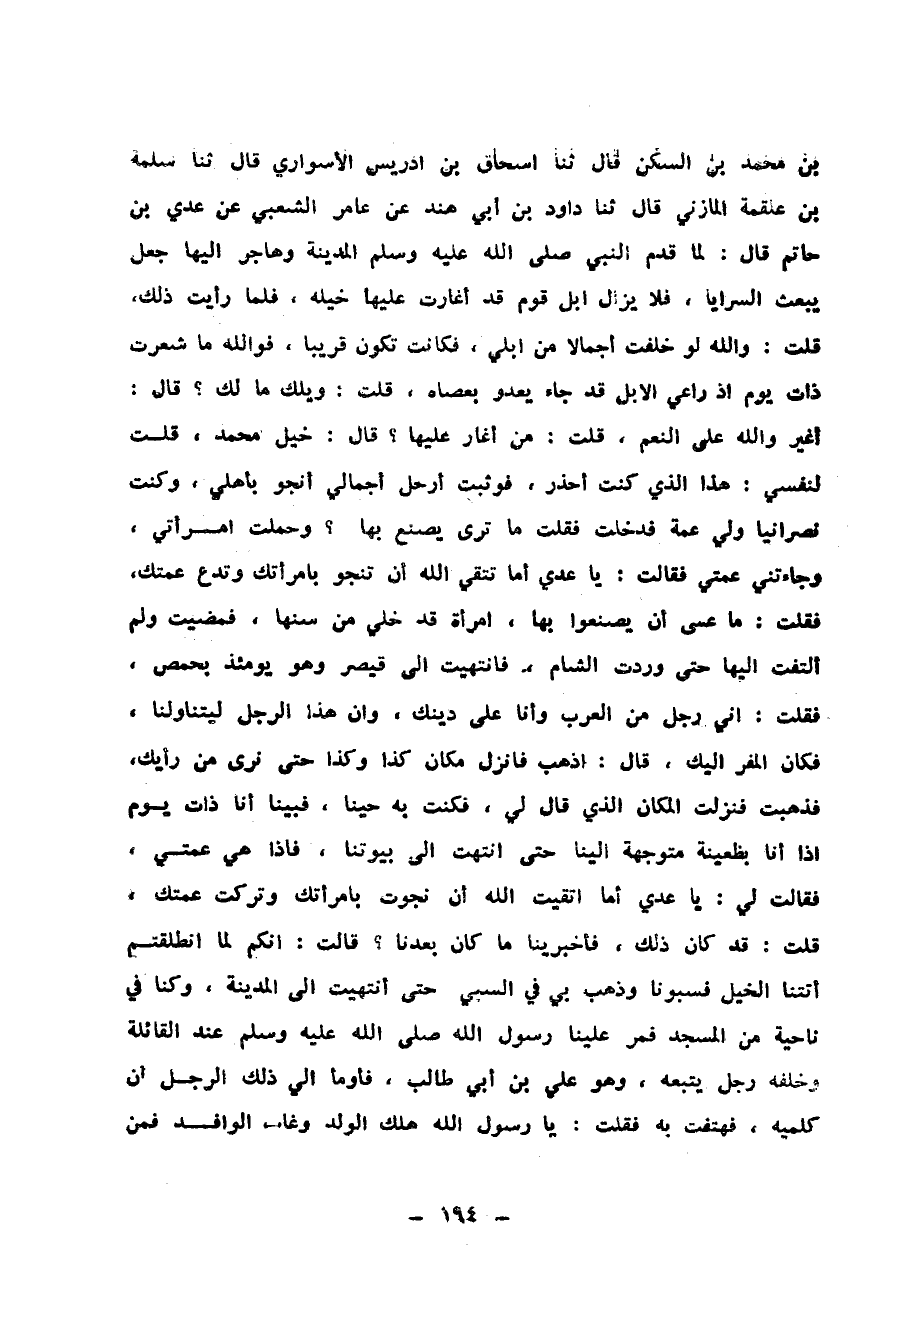 بن محمد بن السكن قال ثنا اسحاق بن ادريس الأسواري قال ثنا سلمة
بن علقمة المازني قال ثنا داود بن أبي هند عن عامر الشعبي عن عدي بن
حاتم قال : لما قدم النبي صلى الله عليه وسلم المدينة وهاجر اليها جعل
يبعث السرايا ، فلا يزال ابل قوم قد أغارت عليها خيله ، فلما رأيت ذلك،
قلت : والله لو خلفت أجمالا من ابلي ، فكانت تكون قريبا ، فوالله ما شعرت
ذات يوم اذ راعي الابل قد جاء يعدو بعصاه ، قلت : ويلك ما لك ؟ قال :
أغير والله على النعم ، قلت : من أغار عليها ؟ قال : خيل محمد ، قلت
لنفسي : هذا الذي كنت أحذر ، فوثبت أرحل أجمالي أنجو بأهلي ، وكنت
نصرانيا ولي عمة فدخلت فقلت ما ترى يصنع بها ؟ وحملت امـرأتي ،
وجاءتني عمتي فقالت : يا عدي أما تتقي الله أن تنجو بامرأتك وتدع عمتك،
فقلت : ما عسى أن يصنعوا بها ، امرأة قد خلي من سنها ، فمضيت ولم
ألتفت اليها حتى وردت الشام ، فانتهيت الى قيصر وهو يومئذ بحمص ،
فقلت : اني رجل من العرب وأنا على دينك ، وان هذا الرجل ليتناولنا ،
فكان المفر اليك ، قال : اذهب فانزل مكان كذا وكذا حتى نرى من رأيك،
فذهبت فنزلت المكان الذي قال لي ، فكنت به حينا ، فبينا أنا ذات يـوم
اذا أنا بظعينة متوجهة الينا حتى انتهت الى بيوتنا ، فاذا هي عمتـي ،
فقالت لي : يا عدي أما اتقيت الله أن نجوت بامرأتك وتركت عمتك ،
قلت : قد كان ذلك ، فأخبرينا ما كان بعدنا ؟ قالت : انكم لما انطلقتـم
أتتنا الخيل فسبونا وذهب بي في السبي حتى أنتهيت الى المدينة ، وكنا في
ناحية من المسجد فمر علينا رسول الله صلى الله عليه وسلم عند القائلة
وخلفه رجل يتبعه ، وهو علي بن أبي طالب ، فأومأ الي ذلك الرجـل أن
كلميه ، فهتفت به فقلت : يا رسول الله هلك الولد وغاب الوافـد فمن
– ١٩٤ –